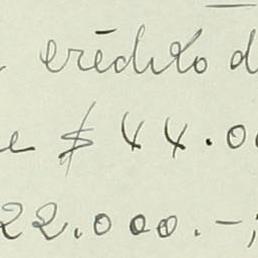 crédito d
e $ 44.00
22.000.-;